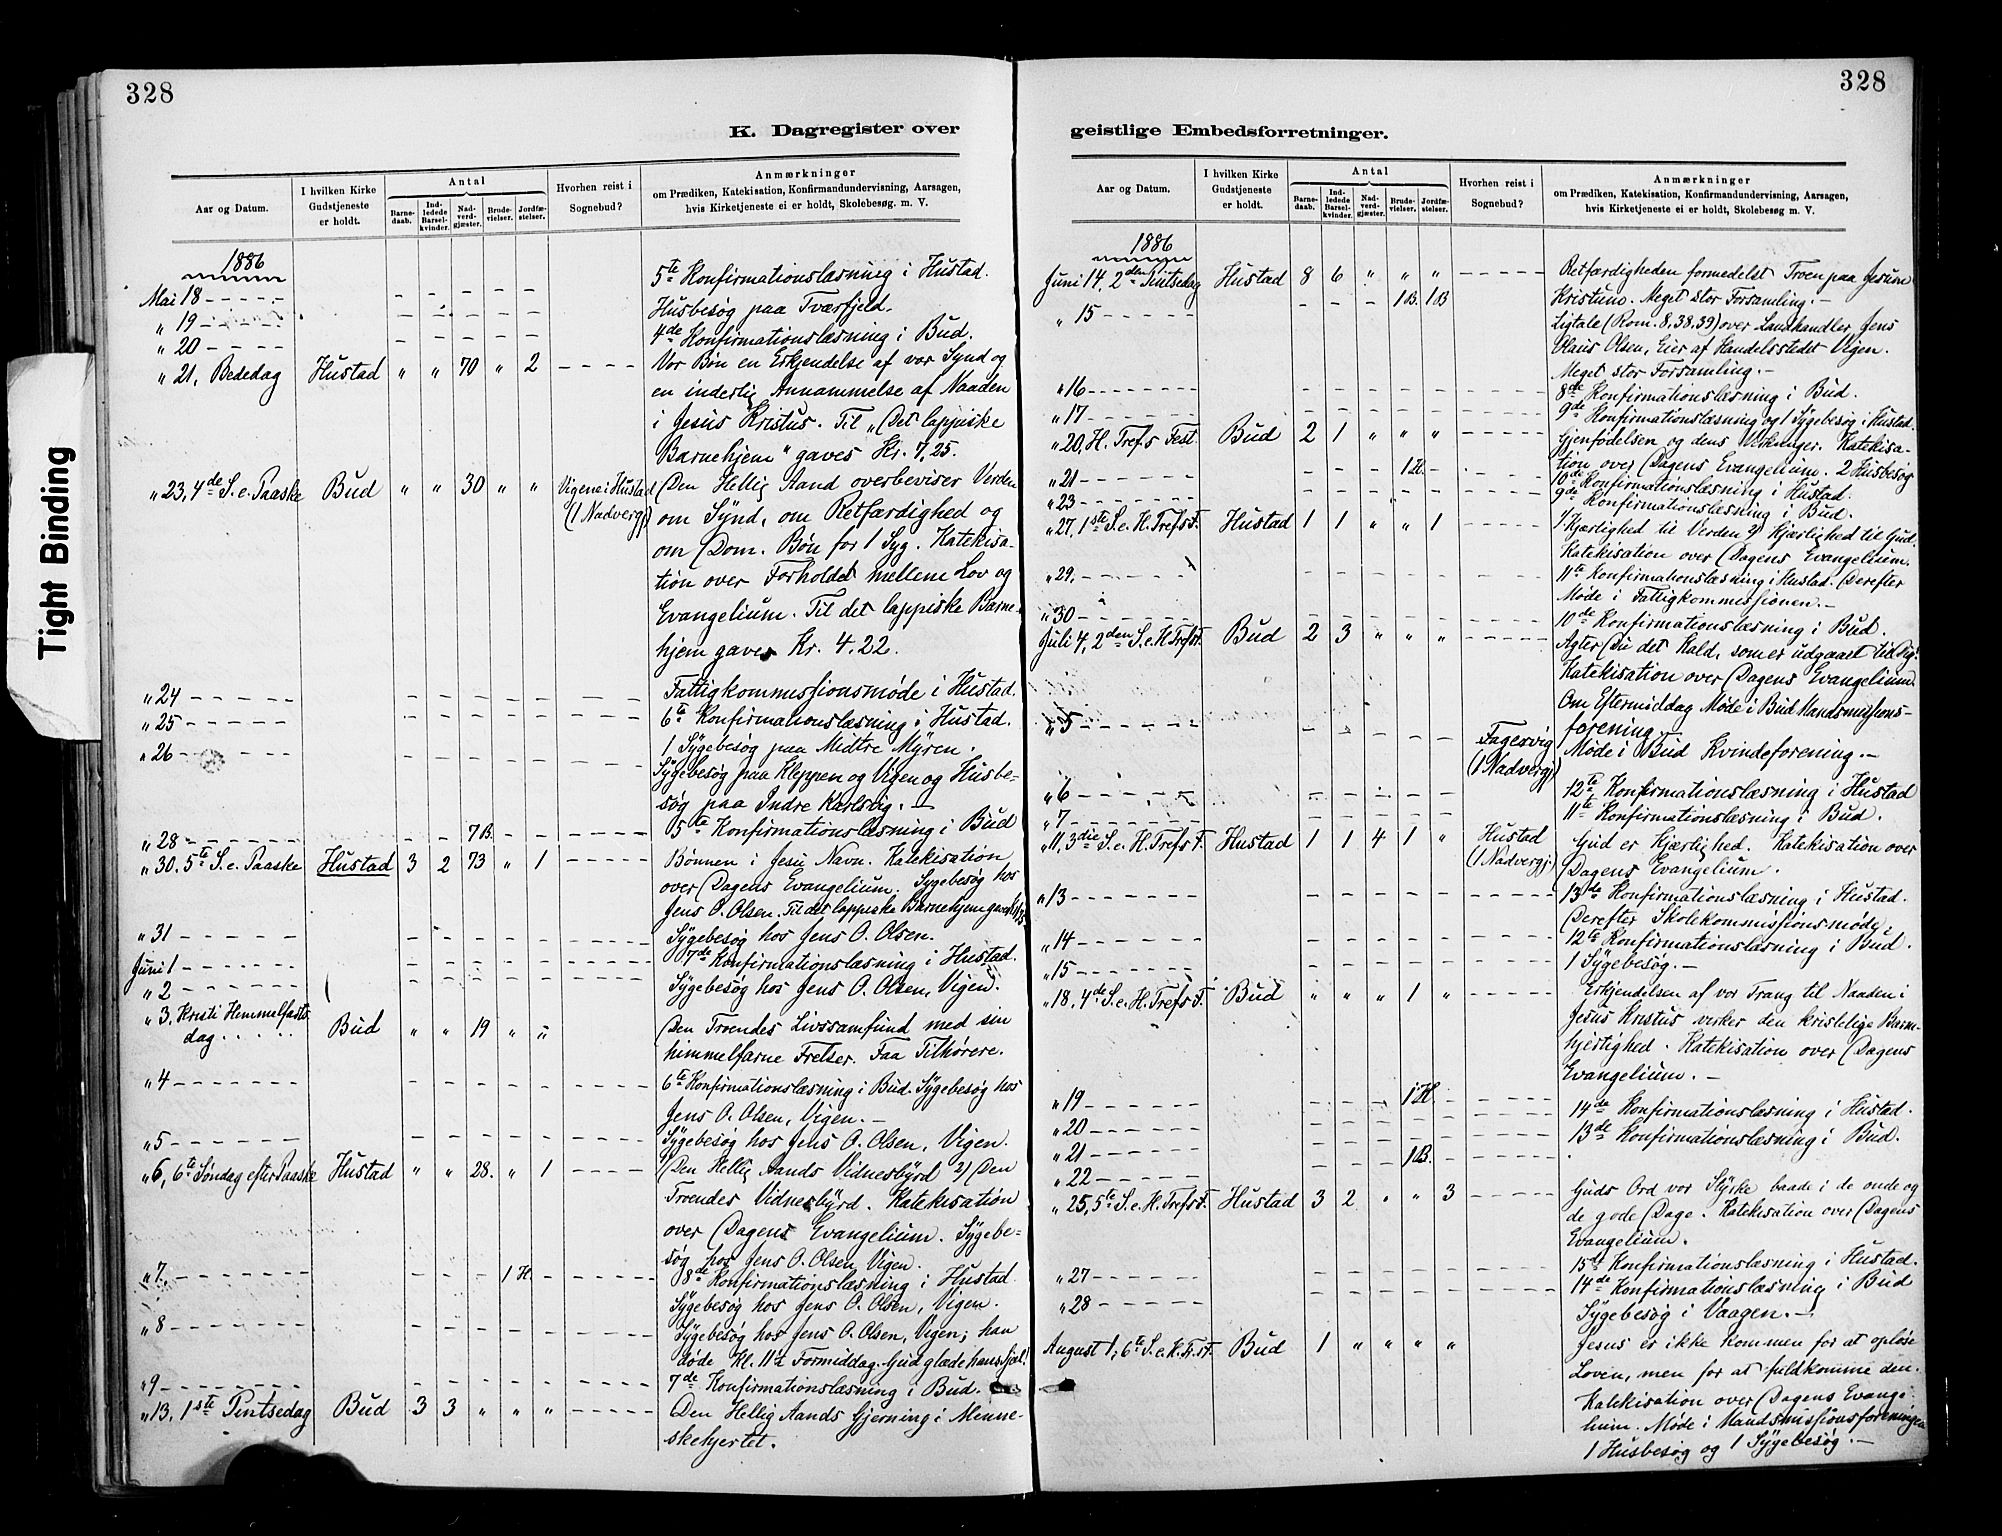 328
K. Dagregister over
Aar og Datum. I hvilken Kirke Gudstjeneste er holdt. Antal Barnedaab. Indledede Barselkvinder. Nadverdgjæster. Brudevielser. Jordfæstelser. Hvorhen reist i Sognebud? Anmærkninger om Prædiken, Katekisation, Konfirmandundervisning, Aarsagen, hvis Kirketjeneste ei er holdt, Skolebesøg m. V.
1886
Mai 18 - - - - - 5te Konfirmationslæsning i Hustad.
" 19 - - - - - Husbesøg paa Tværfjeld.
" 20 - - - - - 4de Konfirmationslæsning i Bud.
" 21, Bededag Hustad " " 70 " 2 - - - - Vor Bøn en Erkjendelse af vor Synd og
en inderlig Annammelse af Naaden
i Jesus Kristus. Til "Det lappiske
Barnehjem" gaves Kr. 7,25.
" 23, 4de S. e. Paaske Bud " " 30 " " Vigene i Hustad Den Hellig Aand overbeviser Verden
(1 Nadvergj) om Synd, om Retfærdighed og
om Dom. Bøn for 1 Syg. Katekisa-
tion over Forholdet mellem Lov og
Evangelium. Til det lappiske Barne-
hjem gaves Kr. 4,22.
" 24 - - - - - Fattigkommissionsmøde i Hustad.
" 25 - - - - - 6te Konfirmationslæsning i Hustad.
1 Sygebesøg paa Midtre Myren.
" 26 - - - - - Sygebesøg paa Kleppen og Vigen og Husbe-
søg paa Indre Karlsvig. -
" 28 - - - - - 7 B. 5te Konfirmationslæsning i Bud
" 30. 5te S. e. Paaske Hustad 3 2 73 " 1 - - - - Bønnen i Jesu Navn. Katekisation
over Dagens Evangelium. Sygebesøg hos
Jens O. Olsen. Til det lappiske Barnehjem gaves
" 31 - - - - - Sygebesøg hos Jens O. Olsen.
Juni 1 - - - - - 7de Konfirmationslæsning i Hustad.
" 2 - - - - - Sygebesøg hos Jens O. Olsen, Vigen.
" 3. Kristi Himmelfarts
dag . . . . Bud " " 19 " " Den Troendes Livssamfund med sin
himmelfarne Frelser. Faa Tilhørere.
" 4 - - - - - 6te Konfirmationslæsning i Bud. Sygebesøg hos
Jens O. Olsen, Vigen. -
" 5 - - - - - Sygebesøg hos Jens O. Olsen, Vigen.
" 6, 6te Søndag efter Paaske Hustad " " 28. " 1 - - - - 1) Den Hellig Aands Vidnesbyrd 2) Den
Troendes Vidnesbyrd. Katekisation
over Dagens Evangelium. Sygebe-
søg hos Jens O. Olsen, Vigen.
" 7. - - - - - 1 H. 8de Konfirmationslæsning i Hustad.
Sygebesøg hos Jens O. Olsen, Vigen.
" 8 - - - - - Sygebesøg hos Jens O. Olsen, Vigen; han
døde Kl. 11½ Formiddag. Gud glæde hans Sjæl!
" 9 - - - - - 7de Konfirmationslæsning i Bud.
" 13, 1ste Pintsedag Bud 3 3 " " " - - - - Den Hellig Aands Gjerning i Menne-
skehjertet.
328
geistlige Embedsforretninger.
Aar og Datum. I hvilken Kirke Gudstjeneste er holdt. Antal Barnedaab. Indledede Barselkvinder. Nadverdgjæster. Brudevielser. Jordfæstelser. Hvorhen reist i Sognebud? Anmærkninger om Prædiken, Katekisation, Konfirmandundervisning, Aarsagen, hvis Kirketjeneste ei er holdt, Skolebesøg m. V.
1886
Juni 14, 2den Pintsedag Hustad 8 6 " " " - - - - Retfærdigheden formedelst Troen paa Jesum
Kristum. Meget stor Forsamling. -
" 15 - - - - - 1 B. 1 B Ligtale (Rom. 8, 38. 39) over Landhandler, Jens
Olaus Olsen, Eier af Handelsstedet Vigen.
Meget stor Forsamling. -
" 16 - - - - - 8de Konfirmationslæsning i Bud.
" 17 - - - - - 9de Konfirmationslæsning og 1 Sygebesøg i Hustad.
" 20, H. Trefs Fest. Bud 2 1 " " " - - - - Gjenfødelsen og dens Virkninger. Katekisa-
tion over Dagens Evangelium. 2 Husbesøg
" 21 - - - - - 1 H. 10de Konfirmationslæsning i Hustad.
" 23 - - - - - 9de Konfirmationslæsning i Bud.
" 27, 1ste S. e. H. Trefs F. Hustad 1 1 " " 1 - - - - 1) Kjærlighed til Verden 2) Kjærlighed til Gud.
Katekisation over Dagens Evangelium.
" 29, - - - - - 11te Konfirmationslæsning i Hustad. Derefter
Møde i Fattigkommissionen. -
" 30 - - - - - 10de Konfirmationslæsning i Bud.
Juli 4, 2den S. e. H. Trefs F. Bud 2 3 " " " - - - - Agter Du det Kald, som er udgaaet til Dig?
Katekisation over Dagens Evangelium.
Om Eftermiddag Møde i Bud Mandsmissions-
forening.
" 5 - - - - - Fagervig Møde i Bud Kvindeforening. -
(1 Nadvergj)
" 6 - - - - - 12te Konfirmationslæsning i Hustad
" 7 - - - - - 11te Konfirmationslæsning i Bud.
" 11, 3die S. e. H. Trefs F. Hustad 1 1 4 1 " Hustad Gud er Kjærlighed. Katekisation over
(1 Nadvergj.) Dagens Evangelium.
" 13 - - - - - 13de Konfirmationslæsning i Hustad.
Derefter Skolekommissionsmøde.
" 14 - - - - - 12te Konfirmationslæsning i Bud.
" 15 - - - - - 1 Sygebesøg. -
" 18. 4de S. e. H. Trefs F. Bud " " " 1 " Erkjendelsen af vor Trang til Naaden i
Jesus Kristus virker den kristelige Barm-
hjertighed. Katekisation over Dagens
Evangelium. -
" 19 - - - - - 1 H.
" 20 - - - - - 14de Konfirmationslæsning i Hustad.
" 21 - - - - - 13de Konfirmationslæsning i Bud.
" 22 - - - - - 1 B.
" 25, 5te S. e. H. Trefs F. Hustad 3 2 " " 3 - - - - Guds Ord vor Styrke baade i de onde og
de gode Dage. Katekisation over Dagens
Evangelium.
" 27 - - - - - 15de Konfirmationslæsning i Hustad.
" 28 - - - - - 14de Konfirmationslæsning i Bud
Sygebesøg i Vaagen. -
August 1, 6te S. e. H. Tr. F. Bud 1 " " " " Jesus er ikke kommen for at opløse
Loven, men for at fuldkomme den.
Katekisation over Dagens Evange-
lium. Møde i Mandsmissionsforeningen
1 Husbesøg og 1 Sygebesøg. -
Tight Binding